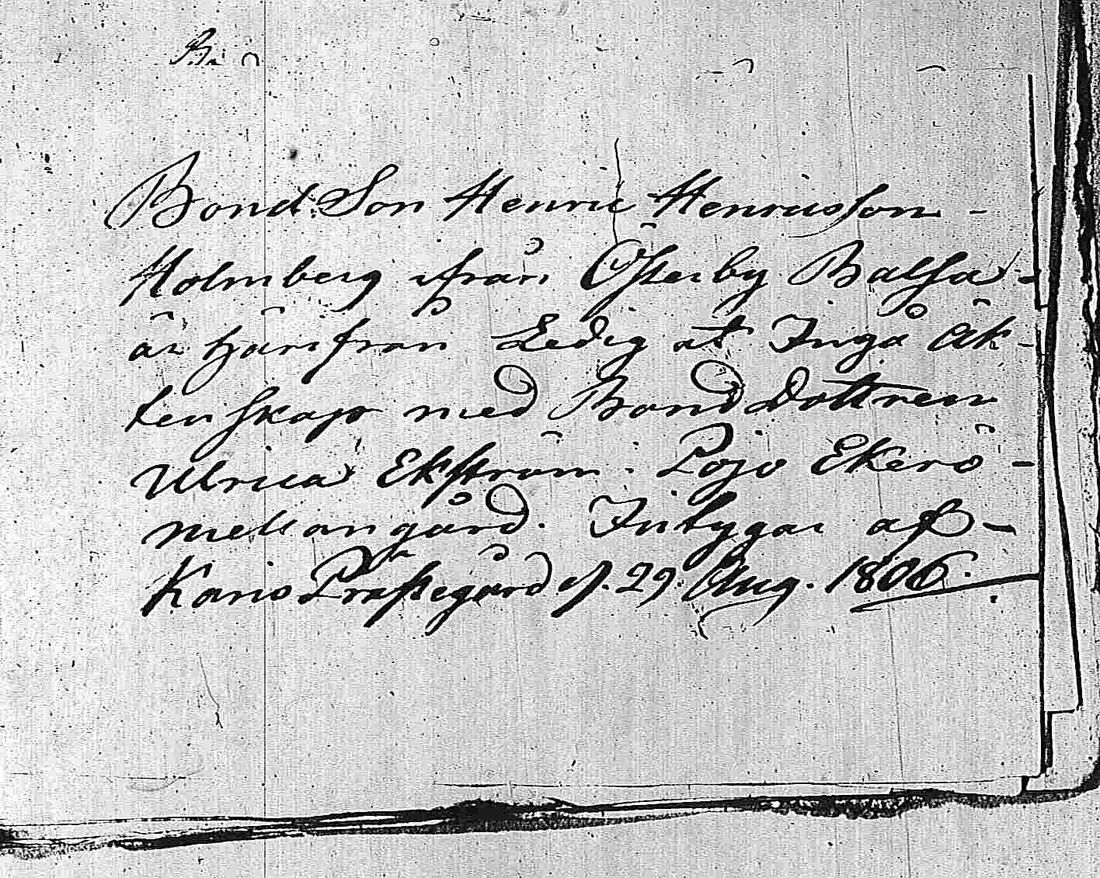 Bond Son Henric Henricsson
Holmberg ifrån Österby Balsa
är härifrån Ledig at Ingå Äk-
tenskap med Bond Dottren
Ulrica Ekström i Pojo Ekerö
mellangård. Intygar af
Karis Prästegård d. 29 Aug. 1806.